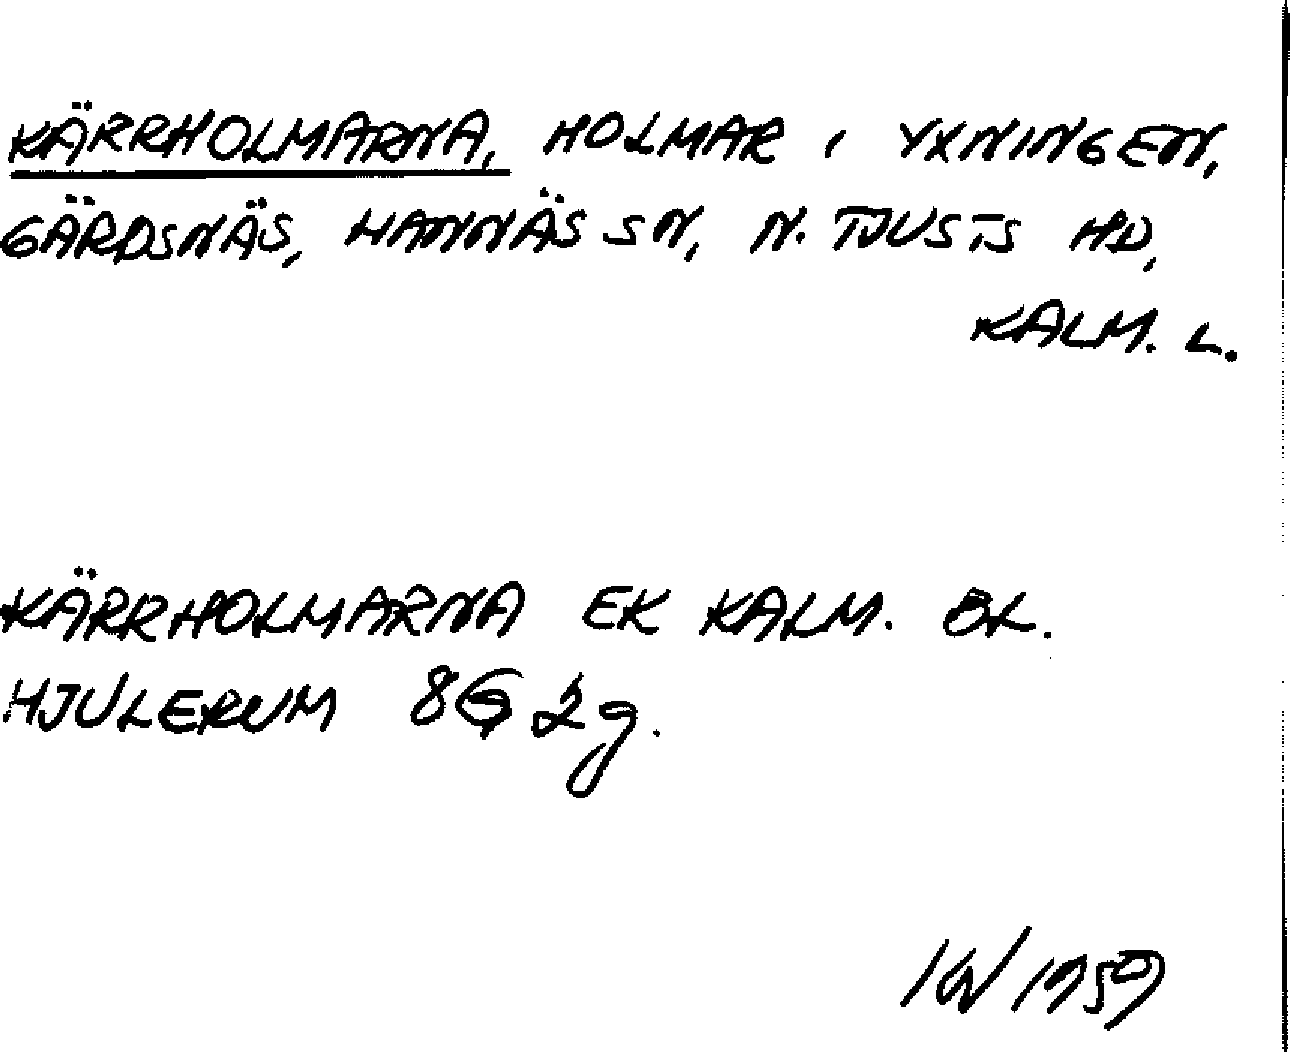 KÄRRHOLMARNA, HOLMAR I YXNINGEN,
GÄRDSNÄS, HANNÄS SN, N. TJUSTS HD,
KALM. L.
KÄRRHOLMARNA EK KALM. BL.
HJULERUM 8G 2g.
1959